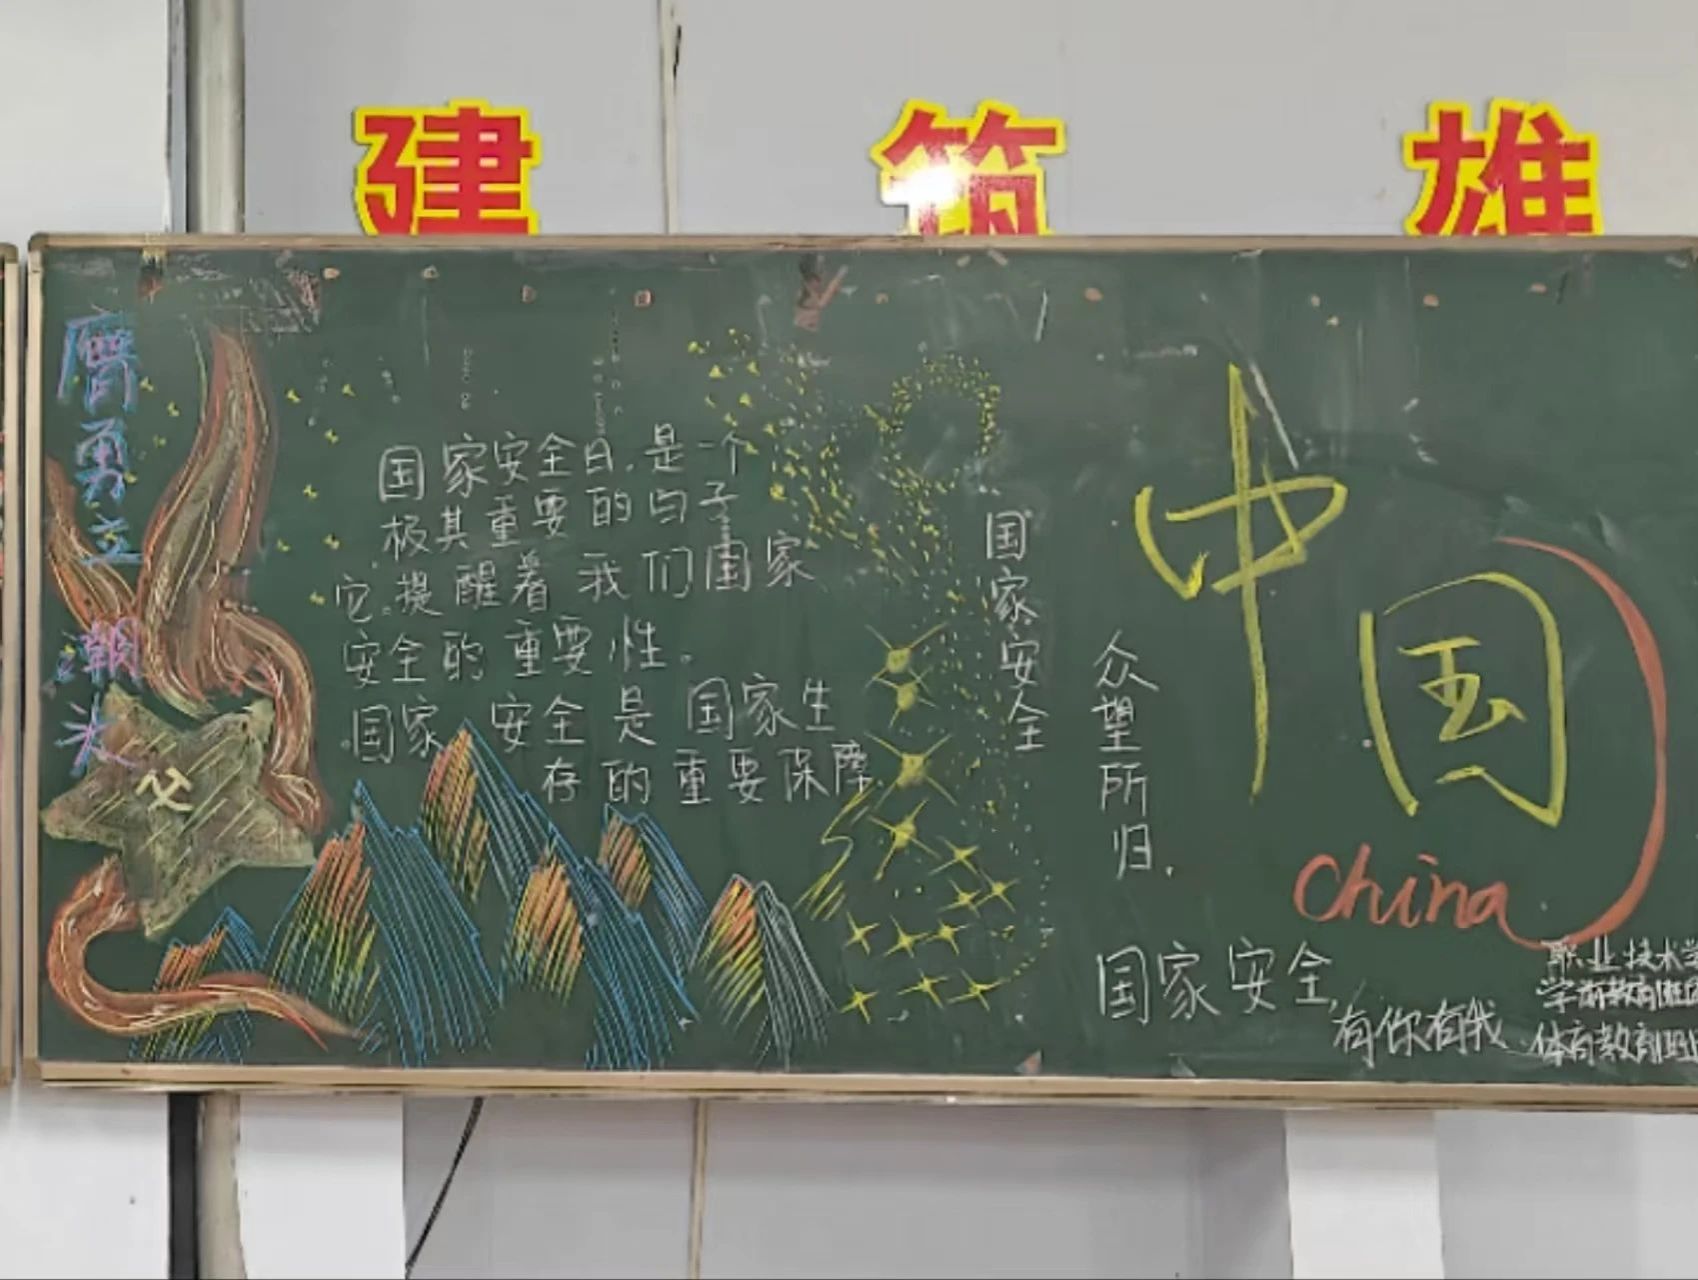 建筑雄
勇立潮头
国家安全日,是一个
极其重要的日子
它提醒着我们国家
安全的重要性。
国家安全是国家生
存的重要保障
国家安全
众望所归.
中国
China
国家安全,
有你有我
职业技术学
学前教育
体育教育